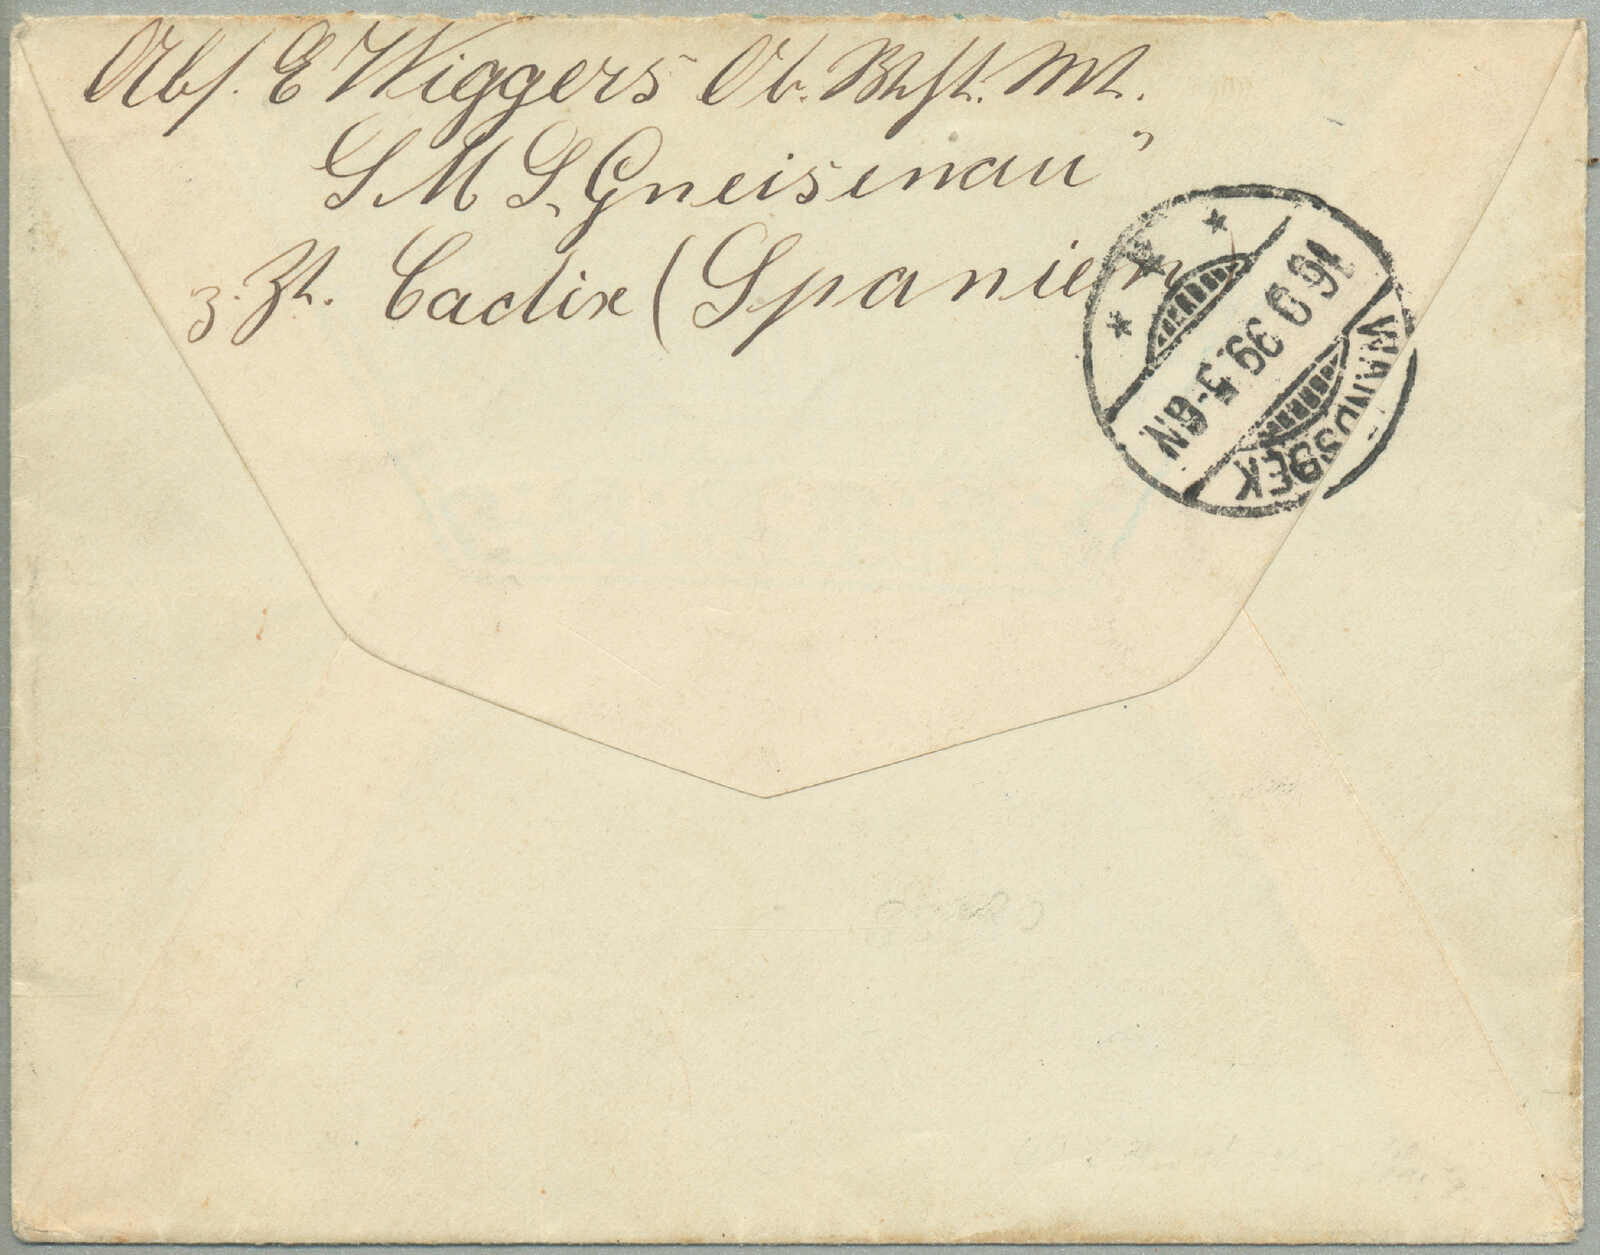 Abs. E Wiggers Ob. Btsm. Mt.
S. M. S. Gneisenau"
z. Zt. Cadix (Spanien
WANDSBEK
16 9 99. 5-6N